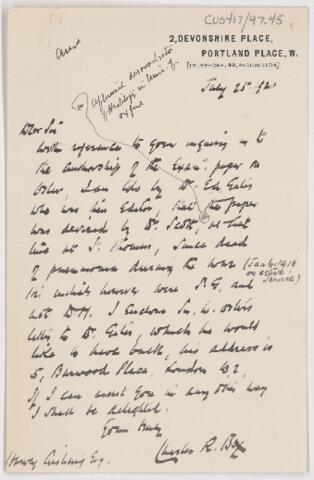 CUS417/97.45
2, DEVONSHIRE PLACE,
PORTLAND PLACE, W.
July 25th 1921
Dear Sir
With reference to your inquiry as to
the authorship of the Exam. paper on
Osler, I am told by Dr. Ed. Gates
who was the Editor, that the paper
was devised by Dr. Scott, at that
time at St. Thomas, since dead
of pneumonia during the war (Jan 6. 1918
on active service)
His initials however were S.G. and
not W.H. I enclose Sir W. Osler's
letter to Dr. Gates, which he would
like to have back, his address is
5, Burwood Place, London W.2.
If I can assist you in any other way
I shall be delighted.
Yours truly
Charles R. Box
Harvey Cushing Esq.